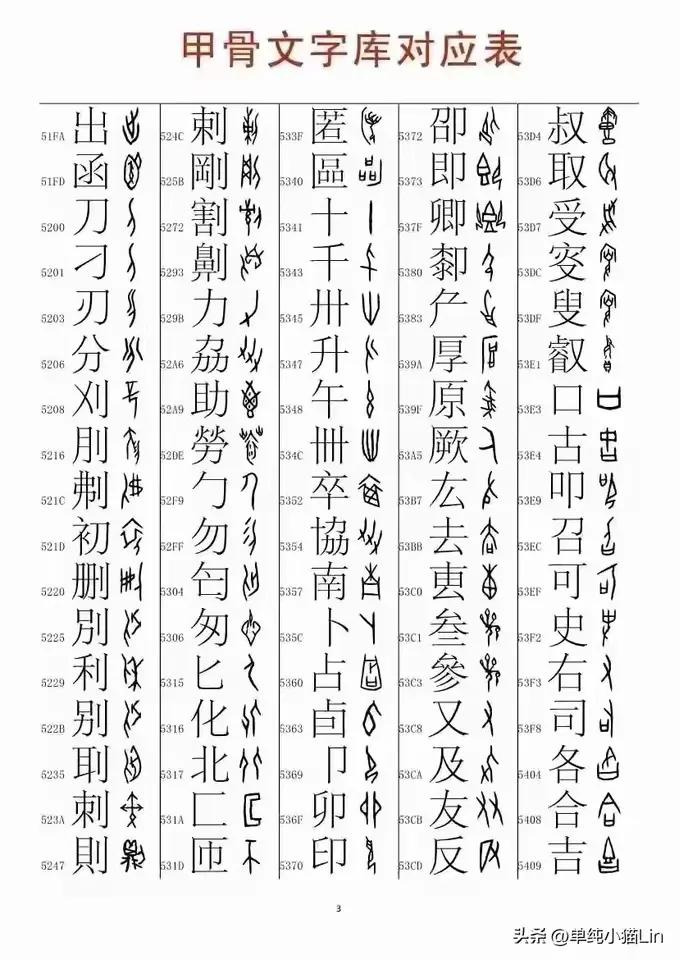 甲骨文字库对应表
51FA 出
51FD 函
5200 刀
5201 刁
5203 刃
5206 分
5208 刈
5216 刖
521C 刜
521D 初
5220 删
5225 別
5229 利
522B 别
5235 刵
523A 刺
5247 則
524C 剌
525B 剛
5272 割
5293 劓
529B 力
52A6 劦
52A9 助
52DE 勞
52F9 勹
52FF 勿
5304 匄
5306 匆
5315 匕
5316 化
5317 北
531A 匚
531D 匝
533F 匿
5340 區
5341 十
5343 千
5345 卅
5347 升
5348 午
534C 卌
5352 卒
5354 協
5357 南
535C 卜
5360 占
5363 卣
5369 卩
536F 卯
5370 印
5372 卲
5373 即
537F 卿
5380 厀
5383 厃
539A 厚
539F 原
53A5 厥
53B7 厷
53BB 去
53C0 叀
53C1 叁
53C3 參
53C8 又
53CA 及
53CB 友
53CD 反
53D4 叔
53D6 取
53D7 受
53DC 叜
53DF 叟
53E1 叡
53E3 口
53E4 古
53E9 叩
53EC 召
53EF 可
53F2 史
53F3 右
53F8 司
5404 各
5408 合
5409 吉
3
头条 @单纯小猫Lin